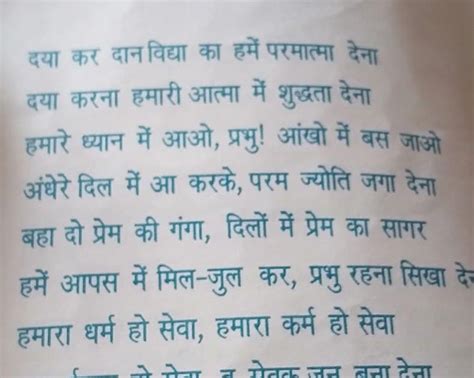 दया कर दान विद्या का हमें परमात्मा देना
दया करना हमारी आत्मा में शुद्धता देना
हमारे ध्यान में आओ, प्रभु! आंखो में बस जाओ
अंधेरे दिल में आ करके, परम ज्योति जगा देना
बहा दो प्रेम की गंगा, दिलों में प्रेम का सागर
हमें आपस में मिल-जुल कर, प्रभु रहना सिखा दे
हमारा धर्म हो सेवा, हमारा कर्म हो सेवा
हो सेवा, व सेवक जन बना देना